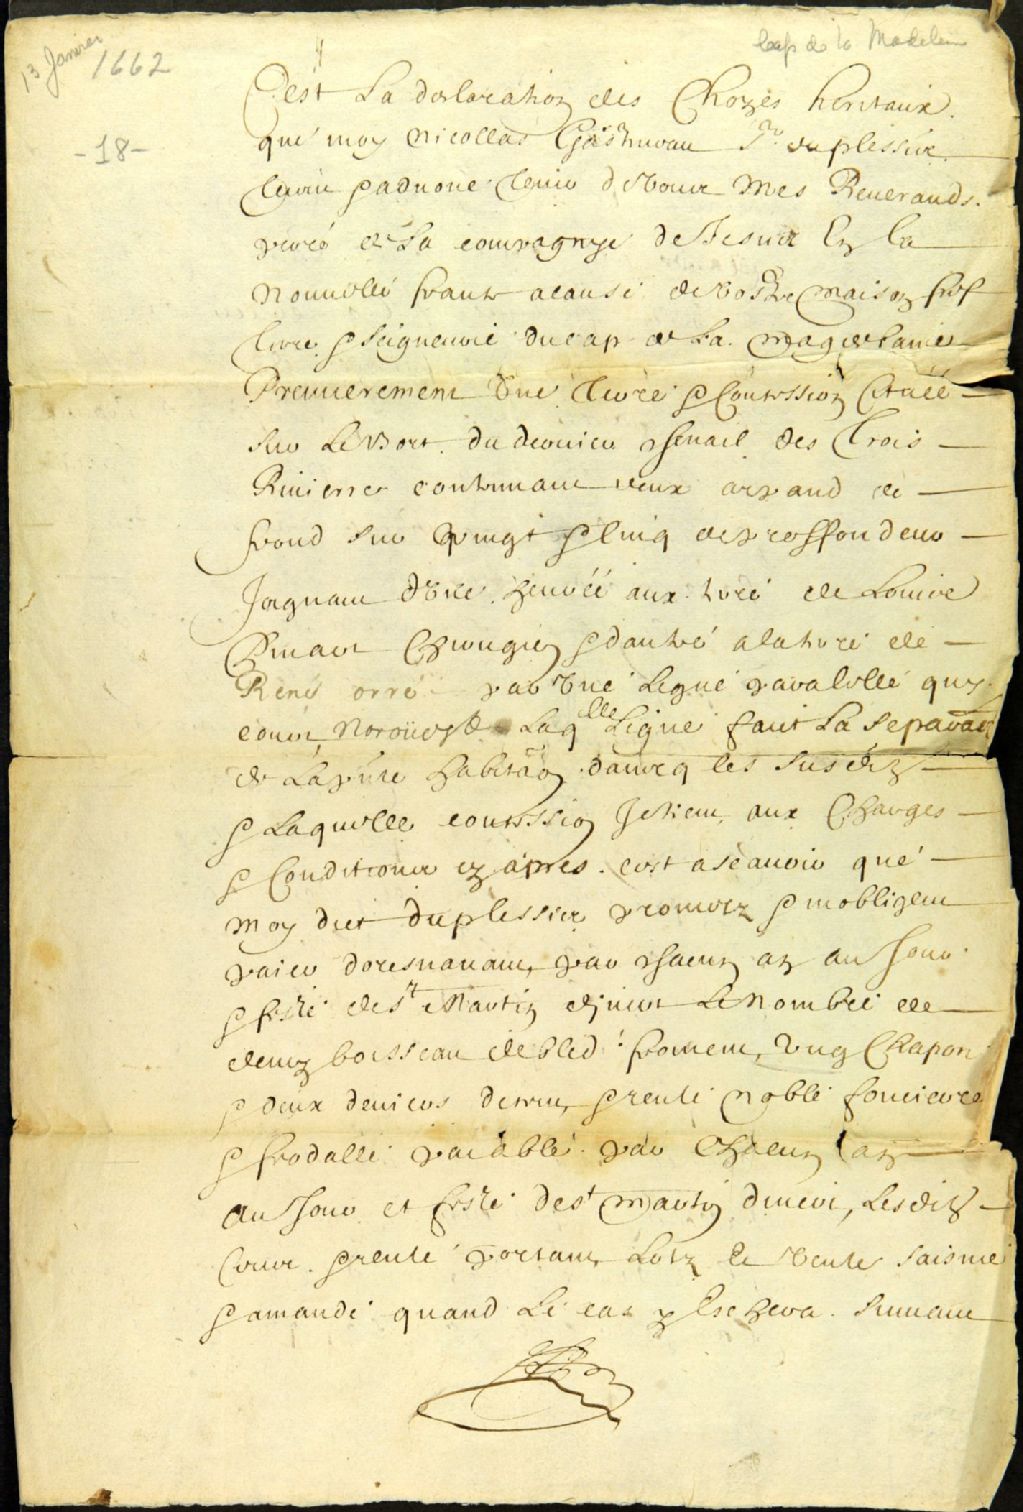 13 Janvier 1662
Cap de la Madelein
-18-
C'est La declaration des Chozes heritaux
que moy Nicollas Gastineau Sr duplessix
tenir & advoue tenir de vous Mes Reverands
peres de La compagnye de Jesus En la
Nouvelle france a cause de vostre maison fief
terre & seigneurie du cap de La magdelaine
Premierement une terre & Concession scituée
sur Le bort du dernier chenail des Trois
Rivierres contenant deux arpand de
front sur vingt & cinq de proffondeur
Jognant d'une part aux terre de Louise
Pinart Chirurgien & dautre a la terre de
René orré par une Ligne paralelle quy
court Norouest Laqlle Ligne faict La separaon
de La habitaon davecq les susditz
& Laquelle concession Je tiens aux Charges
& Conditions cy apres. c'est a scavoir que
moy dict duplessix prometz & moblige
paier doresnavant par chacun an au Jour
& feste de St Martin diver Le Nombre de
deux boisseau de bled froment, Ung Chapon
& deux deniers de cens & rente Noble fonciere
& feodalle paiable par Chacun an
au Jour et feste de St Martin diver, Lesditz
Cens & rente portant Lotz et vente saisine
& amande quand Le cas y Escherra. Suivant